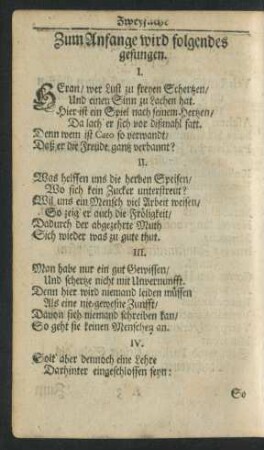 Zweyfache
Zum Anfange wird folgendes
gesungen.
I.
HEran/ wer Lust zu freyen Schertzen/
Und einen Sinn zu Lachen hat.
Hier ist ein Spiel nach seinem Hertzen/
Da lach er sich vor dißmahl satt.
Denn wem ist Cato so verwandt/
Daß er die Freude gantz verbannt?
II.
Was helffen uns die herben Speisen/
Wo sich kein Zucker unterstreut?
Wil uns ein Mensch viel Arbeit weisen/
So zeig er auch die Fröligkeit/
Dadurch der abgezehrte Muth
Sich wieder was zu gute thut.
III.
Man habe nur ein gut Gewissen/
Und schertze nicht mit Unvernunfft.
Denn hier wird niemand leiden müssen
Als eine nie gewesne Zunfft/
Davon sich niemand schreiben kan/
So geht sie keinen Menschen an.
IV.
Solt aber dennoch eine Lehre
Darhinter eingeschlossen seyn:
So